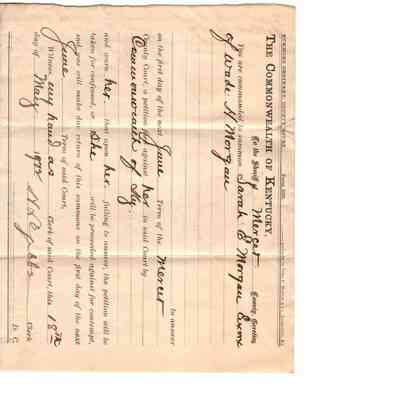 SUMMONS ORDINARY, COUNTY COURT.
THE COMMONWEALTH OF KENTUCKY,
To the Sheriff of Mercer County, Greeting
You are commanded to summon Sarah E Morgan Exrx
of Wade H Morgan
to answer
on the first day of the next June Term of the Mercer
County Court, a petition filed against her in said Court by
Commonwealth of Ky.
and warn her that upon her failing to answer, the petition will be
taken for confessed, or she will be proceeded against for contempt,
and you will make due return of this summons on the first day of the next
June Term of said Court.
Witness, my hand as Clerk of said Court, this 18th
day of May 1912
Clerk
D. C.